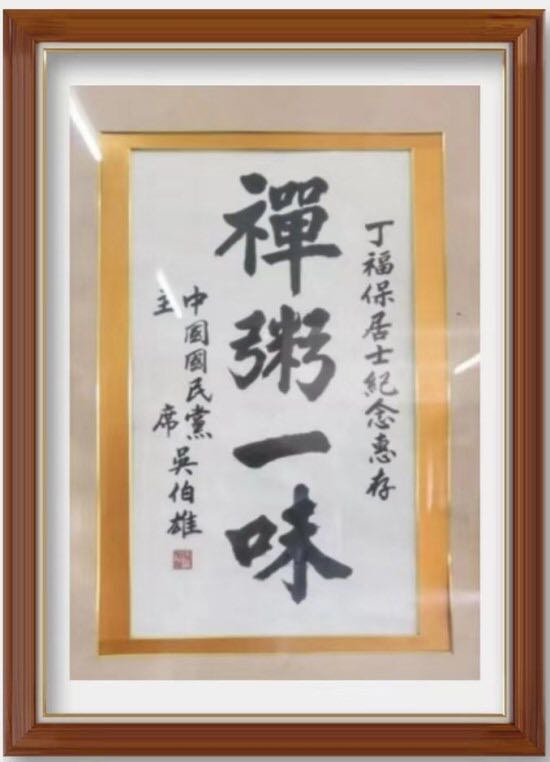 丁福保居士紀念惠存
禪粥一味
中国國民黨
主席
吳伯雄